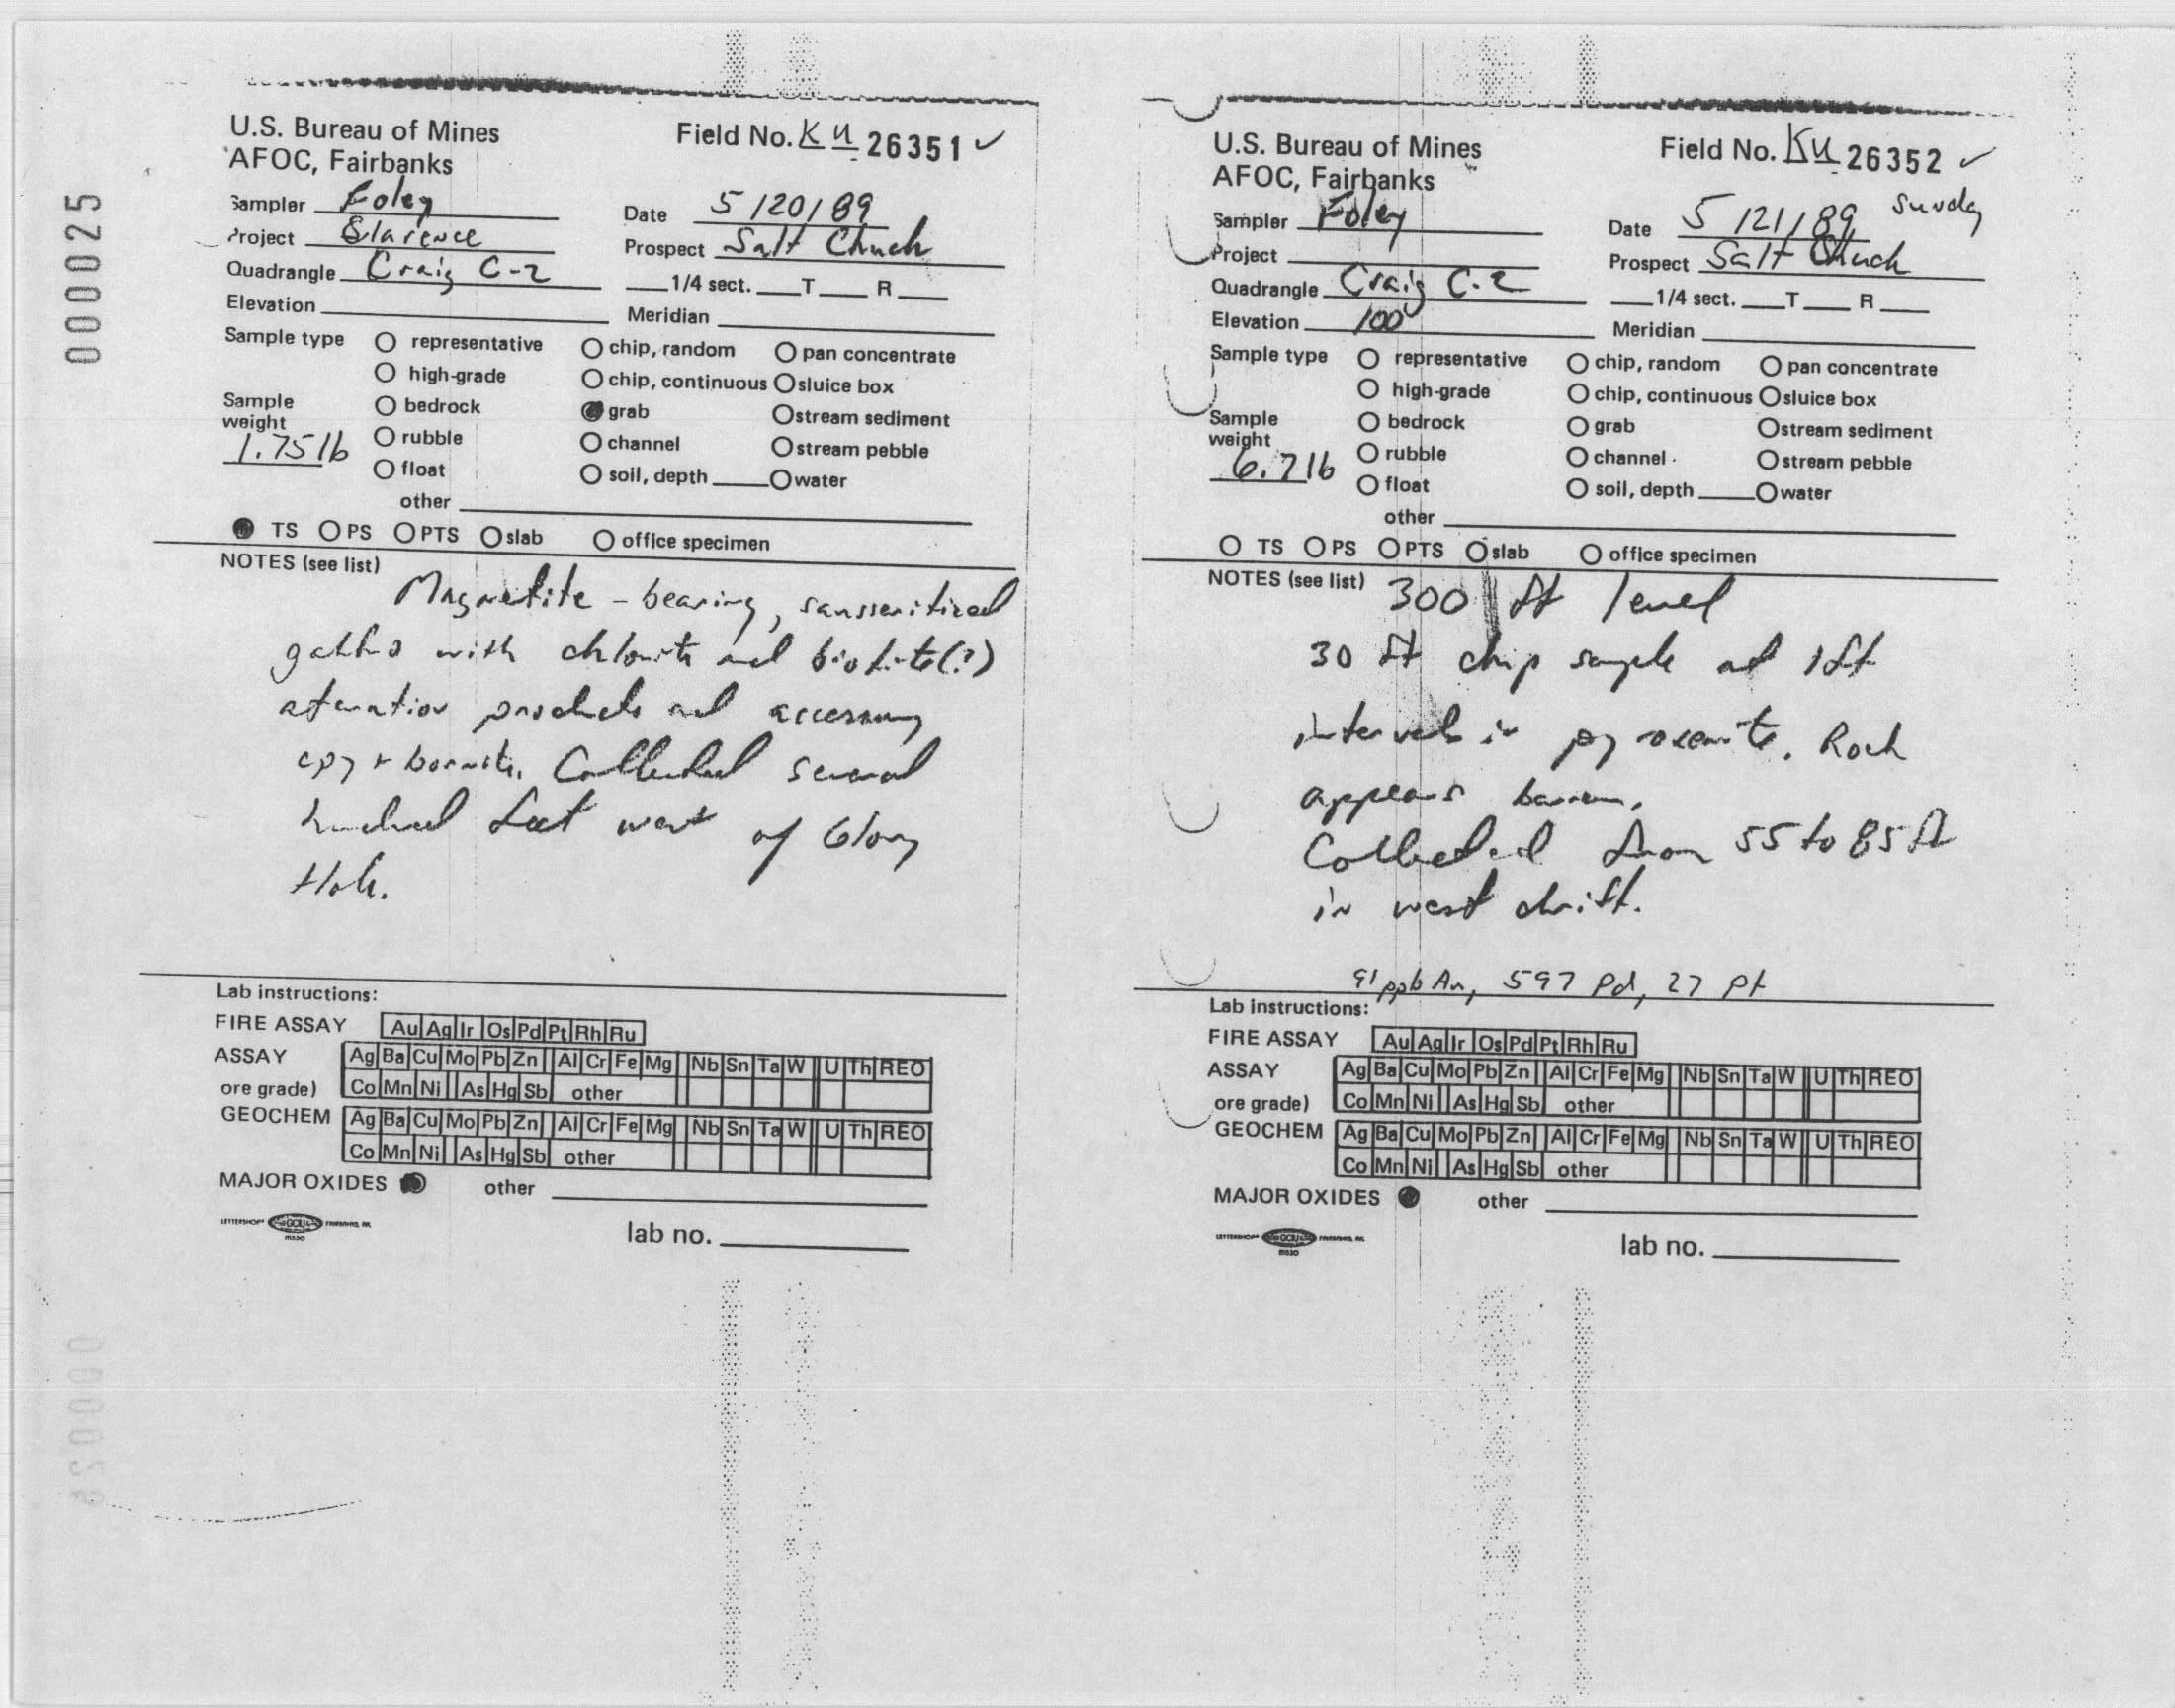 000025
U.S. Bureau of Mines
AFOC, Fairbanks
Field No. KU 26351 ✓
Sampler Foley
Date 5/20/89
Project Clarence
Prospect Salt Chuck
Quadrangle Craig C-2
1/4 sect. T R
Elevation
Meridian
Sample type O representative O chip, random O pan concentrate
O high-grade O chip, continuous O sluice box
Sample weight O bedrock ● grab O stream sediment
1.75 lb O rubble O channel O stream pebble
O float O soil, depth O water
other
● TS O PS O PTS O slab O office specimen
NOTES (see list)
Magnetite-bearing, saussuritized
gabbro with chlorite and biotite(?)
alteration products and accessory
cpy + bornite. Collected several
hundred feet west of Glory
Hole.
Lab instructions:
FIRE ASSAY Au Ag Ir Os Pd Pt Rh Ru
ASSAY Ag Ba Cu Mo Pb Zn Al Cr Fe Mg Nb Sn Ta W U Th REO
ore grade) Co Mn Ni As Hg Sb other
GEOCHEM Ag Ba Cu Mo Pb Zn Al Cr Fe Mg Nb Sn Ta W U Th REO
Co Mn Ni As Hg Sb other
MAJOR OXIDES ● other
lab no.
U.S. Bureau of Mines
AFOC, Fairbanks
Field No. KU 26352 ✓
Sampler Foley
Date 5/21/89 Sunday
Project
Prospect Salt Chuck
Quadrangle Craig C-2
1/4 sect. T R
Elevation 100'
Meridian
Sample type O representative O chip, random O pan concentrate
O high-grade O chip, continuous O sluice box
Sample weight O bedrock O grab O stream sediment
6.7 lb O rubble O channel O stream pebble
O float O soil, depth O water
other
O TS O PS O PTS O slab O office specimen
NOTES (see list) 300 ft level
30 ft chip sample at 1 ft
intervals in pyroxenite. Rock
appears barren.
Collected from 55 to 85 ft
in west drift.
91 ppb Au, 597 Pd, 27 Pt
Lab instructions:
FIRE ASSAY Au Ag Ir Os Pd Pt Rh Ru
ASSAY Ag Ba Cu Mo Pb Zn Al Cr Fe Mg Nb Sn Ta W U Th REO
ore grade) Co Mn Ni As Hg Sb other
GEOCHEM Ag Ba Cu Mo Pb Zn Al Cr Fe Mg Nb Sn Ta W U Th REO
Co Mn Ni As Hg Sb other
MAJOR OXIDES ● other
lab no.